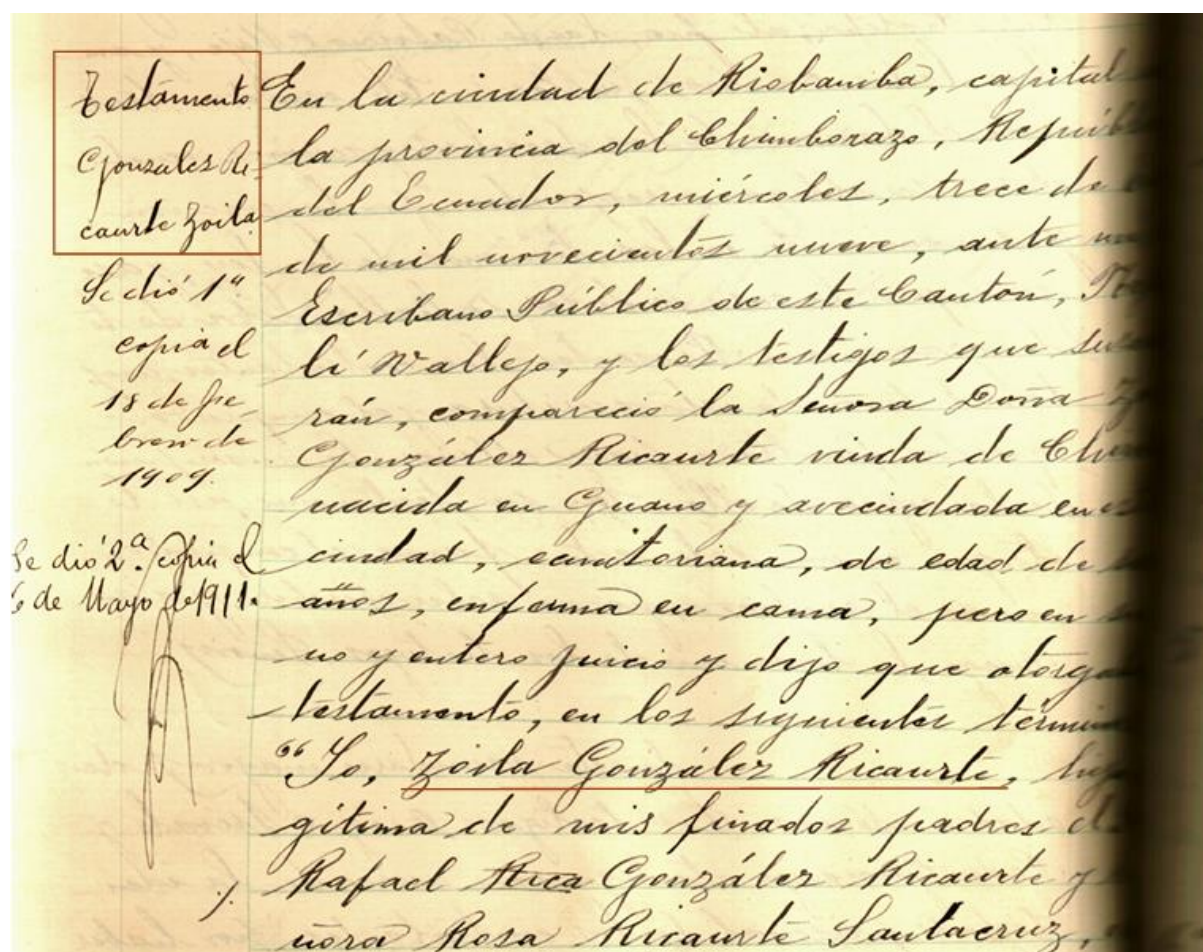 Testamento
Gonzales Ri-
caurte Zoila.
Se dió 1ª
copia el
18 de fe-
brero de
1909.
Se dió 2ª. copia el
6 de Mayo de 1911.
En la ciudad de Riobamba, capital
la provincia del Chimborazo, Repúbl
del Ecuador, miércoles, trece de
de mil novecientos nueve, ante
Escribano Público de este Cantón,
lí Vallejo, y los testigos que
rán, compareció la Señora Doña
González Ricaurte viuda de
nacida en Guano y avecindada en
ciudad, ecuatoriana, de edad de
años, enferma en cama, pero en
no y entero juicio y dijo que otorga
testamento, en los siguientes térmi
"Yo, Zoila González Ricaurte, hija
gítima de mis finados padres
Rafael Rica González Ricaurte y
ñora Rosa Ricaurte Santacruz,